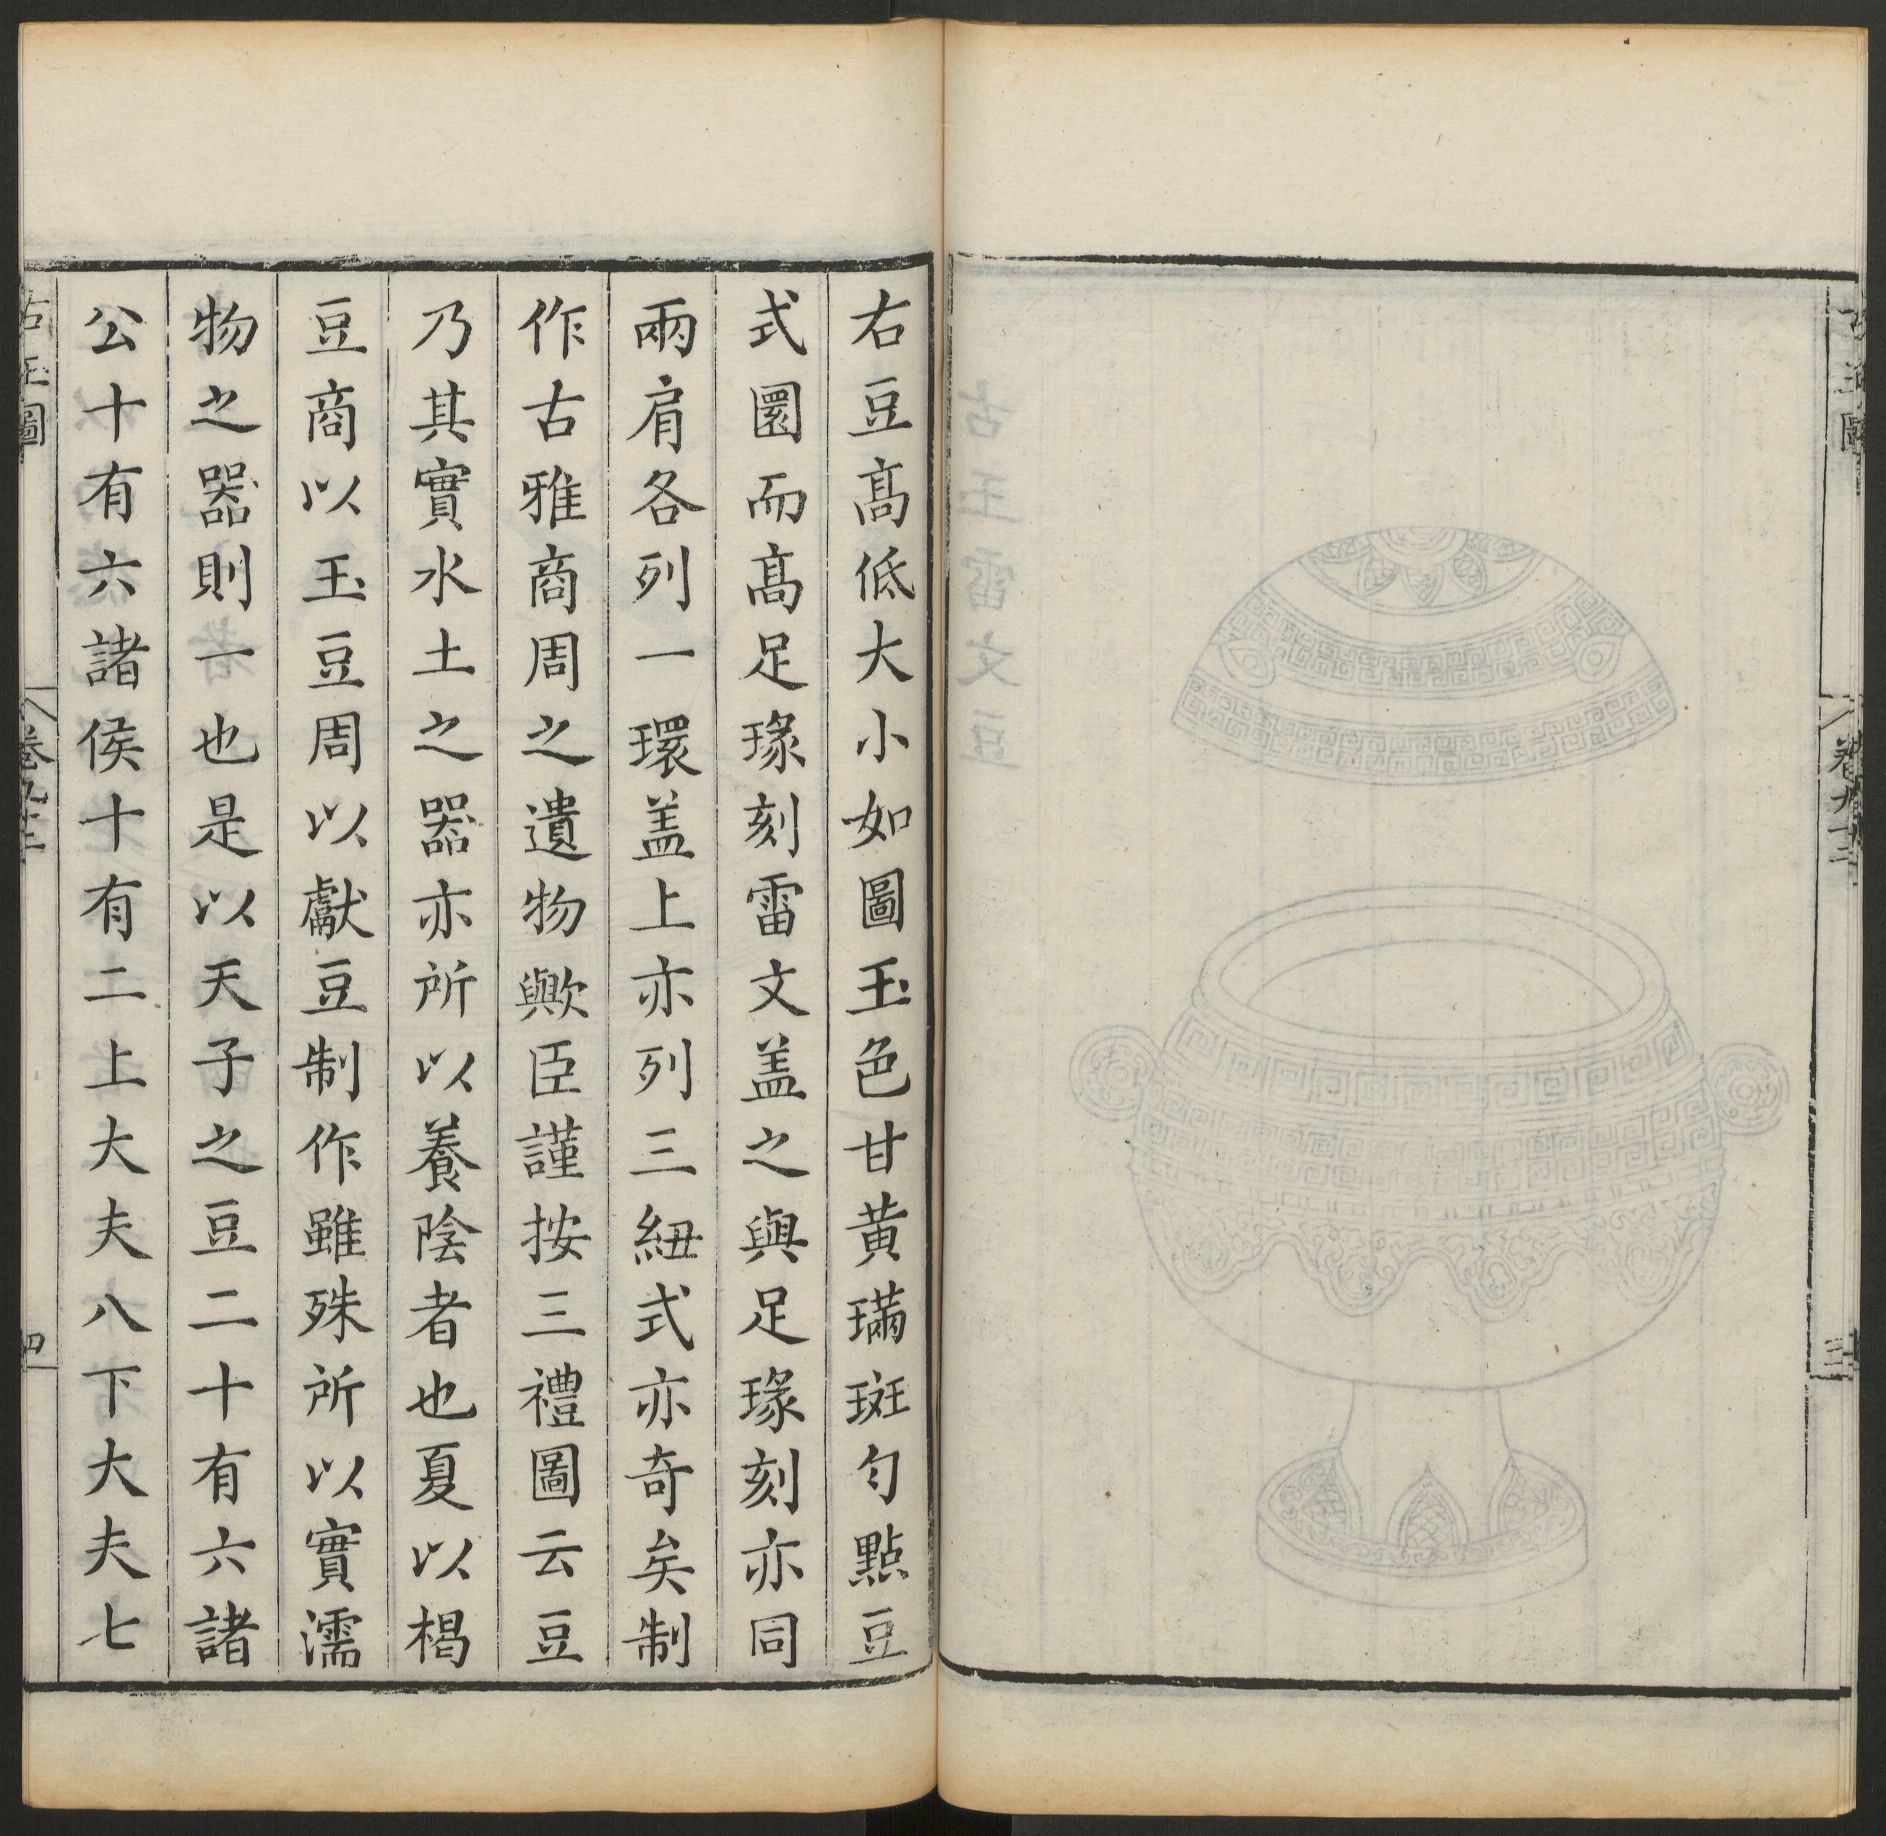 古玉圖
卷九十二
三
右豆髙低大小如圖玉色甘黄璊斑勻點豆
式圜而髙足瑑刻雷文盖之與足瑑刻亦同
兩肩各列一環盖上亦列三紐式亦奇矣制
作古雅商周之遺物歟臣謹按三禮圖云豆
乃其實水土之器亦所以養陰者也夏以楬
豆商以玉豆周以獻豆制作雖殊所以實濡
物之器則一也是以天子之豆二十有六諸
公十有六諸侯十有二上大夫八下大夫七
古玉圖
卷九十二
四